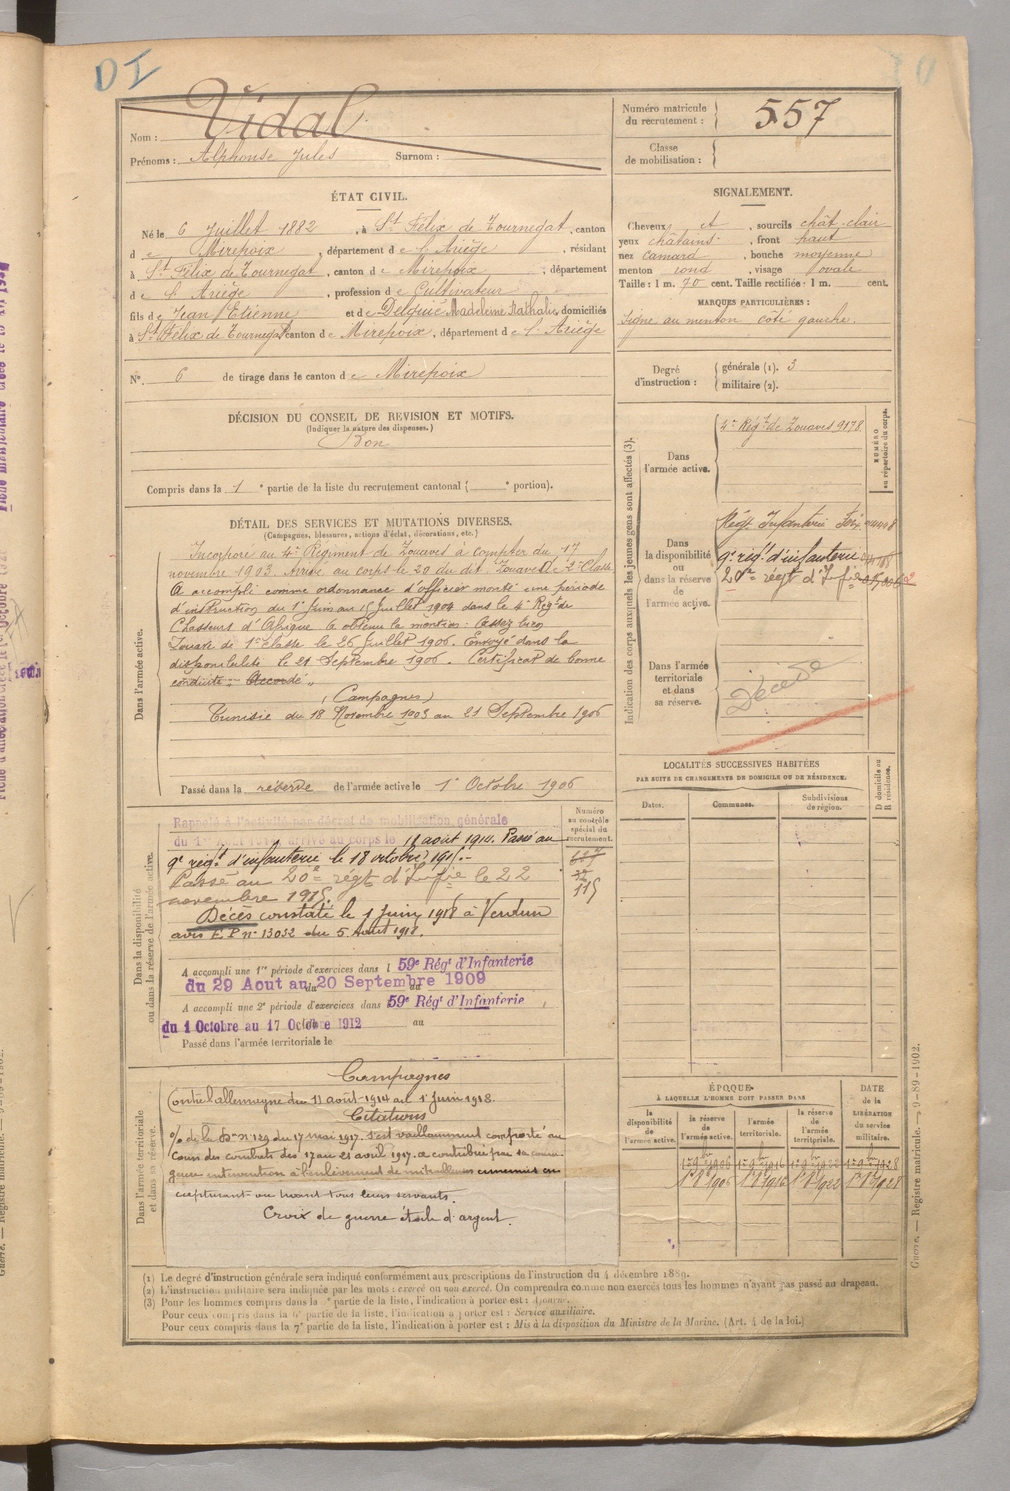 DI
Nom : Vidal
Prénoms : Alphonse Jules Surnom :
Numéro matricule du recrutement : 557
Classe de mobilisation :
ÉTAT CIVIL.
Né le 6 Juillet 1882, à St Félix de Tournegat, canton
de Mirepoix, département de l'Ariège, résidant
à St Félix de Tournegat, canton de Mirepoix, département
de l'Ariège, profession de Cultivateur
fils de Jean Etienne et de Delguié Madeleine Nathalie, domiciliés
à St Félix de Tournegat canton de Mirepoix, département de l'Ariège
N°. 6 de tirage dans le canton de Mirepoix
SIGNALEMENT.
Cheveux et, sourcils chât. clair
yeux châtains, front haut
nez camard, bouche moyenne
menton rond, visage ovale
Taille : 1 m. 70 cent. Taille rectifiée : 1 m. cent.
MARQUES PARTICULIÈRES :
Signe au menton côté gauche.
Degré d'instruction : générale (1). 3
militaire (2).
DÉCISION DU CONSEIL DE REVISION ET MOTIFS.
(Indiquer la nature des dispenses.)
Bon
Compris dans la 1e partie de la liste du recrutement cantonal ( e portion).
DÉTAIL DES SERVICES ET MUTATIONS DIVERSES.
(Campagnes, blessures, actions d'éclat, décorations, etc.)
Dans l'armée active.
Incorporé au 4e Régiment de Zouaves à compter du 17
novembre 1903. Arrivé au corps le 20 du dit. Zouave de 2e Classe
A accompli comme ordonnance d'officier monté une période
d'instruction du 1er Juin au 15 Juillet 1904 dans le 4e Régt de
Chasseurs d'Afrique a obtenu la mention : Assez bien
Zouave de 1re Classe le 26 Juillet 1906. Envoyé dans la
disponibilité le 21 Septembre 1906. Certificat de bonne
conduite : Accordé.
(Campagnes)
Tunisie du 18 Novembre 1903 au 21 Septembre 1906
Passé dans la réserve de l'armée active le 1er Octobre 1906
Indication des corps auxquels les jeunes gens sont affectés (3).
NUMÉRO au répertoire du corps.
Dans l'armée active.
4e Régt de Zouaves 9178
Dans la disponibilité ou dans la réserve de l'armée active.
Régt Infanterie Foix
9e régt d'infanterie
20e régt d'Infie
Dans l'armée territoriale et dans sa réserve.
Décédé
LOCALITÉS SUCCESSIVES HABITÉES
PAR SUITE DE CHANGEMENTS DE DOMICILE OU DE RÉSIDENCE.
Dates. Communes. Subdivisions de région. D domicile ou R résidence.
Dans la disponibilité ou dans la réserve de l'armée active.
Numéro au contrôle spécial du recrutement.
115
Rappelé à l'activité par décret de mobilisation générale
du 1er Août 1914 arrivé au corps le 11 août 1914. Passé au
9e régt d'infanterie le 18 octobre 1915.-
Passé au 20e régt d'Infie le 22
novembre 1915.
Décès constaté le 1 Juin 1918 à Verdun
avis E.P. n° 13032 du 5 Août 1918.
A accompli une 1re période d'exercices dans l 59e Régt d'Infanterie
du 29 Aout au 20 Septembre 1909
A accompli une 2e période d'exercices dans l 59e Régt d'Infanterie
du 1 Octobre au 17 Octobre 1912 au
Passé dans l'armée territoriale le
Dans l'armée territoriale et dans sa réserve.
Campagnes
Contre l'allemagne du 11 août 1914 au 1er Juin 1918.
Citations
O/ de la Don n° 129 du 17 mai 1917. S'est vaillamment comporté au
Cours des combats des 17 au 21 avril 1917. a contribué par sa coura-
geuse intervention à l'enlèvement de mitrailleuses ennemies en
capturant ou tuant tous leurs servants.
Croix de guerre étoile d'argent.
ÉPOQUE
À LAQUELLE L'HOMME DOIT PASSER DANS
la disponibilité de l'armée active. la réserve de l'armée active. l'armée territoriale. la réserve de l'armée territoriale.
DATE de la LIBÉRATION du service militaire.
1er 9bre 1906 1er 9bre 1916 1er 9bre 1922 1er 9bre 1928
1er 8bre 1906 1er 8bre 1916 1er 8bre 1922 1er 8bre 1928
(1) Le degré d'instruction générale sera indiqué conformément aux prescriptions de l'instruction du 4 décembre 1889.
(2) L'instruction militaire sera indiquée par les mots : exercé ou non exercé. On comprendra comme non exercés tous les hommes n'ayant pas passé au drapeau.
(3) Pour les hommes compris dans la e partie de la liste, l'indication à porter est : Ajourné.
Pour ceux compris dans la 6e partie de la liste, l'indication à porter est : Service auxiliaire.
Pour ceux compris dans la 7e partie de la liste, l'indication à porter est : Mis à la disposition du Ministre de la Marine. (Art. 4 de la loi.)
Guerre. — Registre matricule. — 9-89-1902.